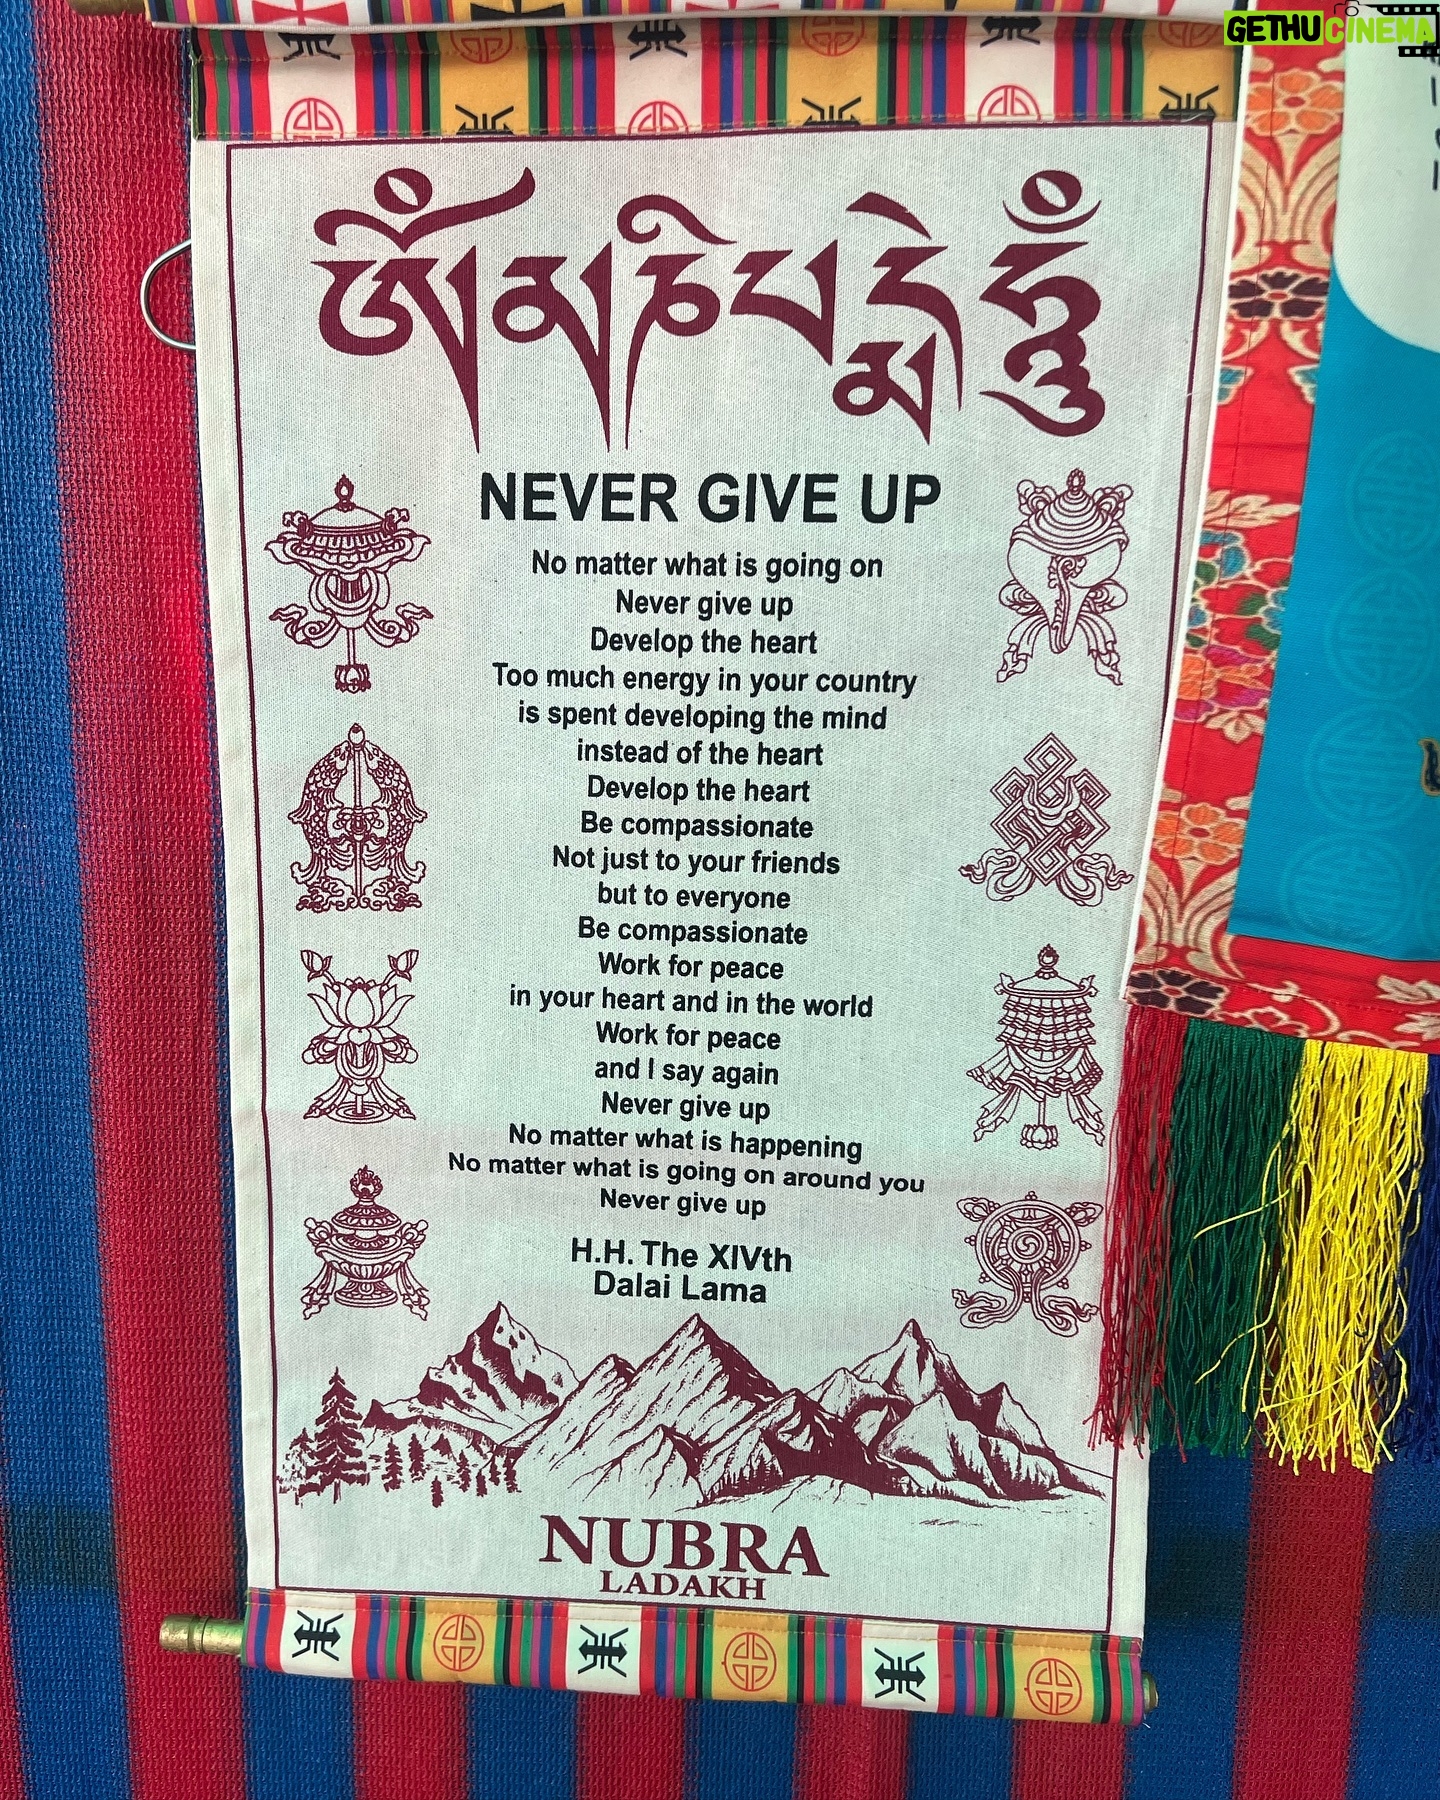 GETHU CINEMA
ༀམཎིཔདྨེཧཱུྃ
NEVER GIVE UP
No matter what is going on
Never give up
Develop the heart
Too much energy in your country
is spent developing the mind
instead of the heart
Develop the heart
Be compassionate
Not just to your friends
but to everyone
Be compassionate
Work for peace
in your heart and in the world
Work for peace
and I say again
Never give up
No matter what is happening
No matter what is going on around you
Never give up
H.H. The XIVth
Dalai Lama
NUBRA
LADAKH